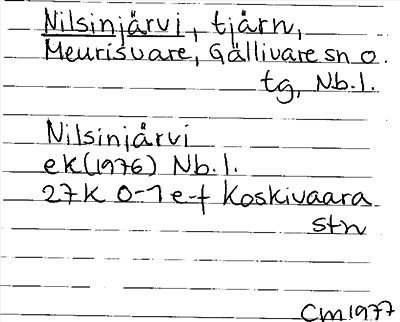 Nilsinjärvi, tjärn,
Meurisvare, Gällivare sn o.
tg, Nb.l.
Nilsinjärvi
ek(1976) Nb.l.
27K 0-1 e-f Koskivaara
stn
CM1977